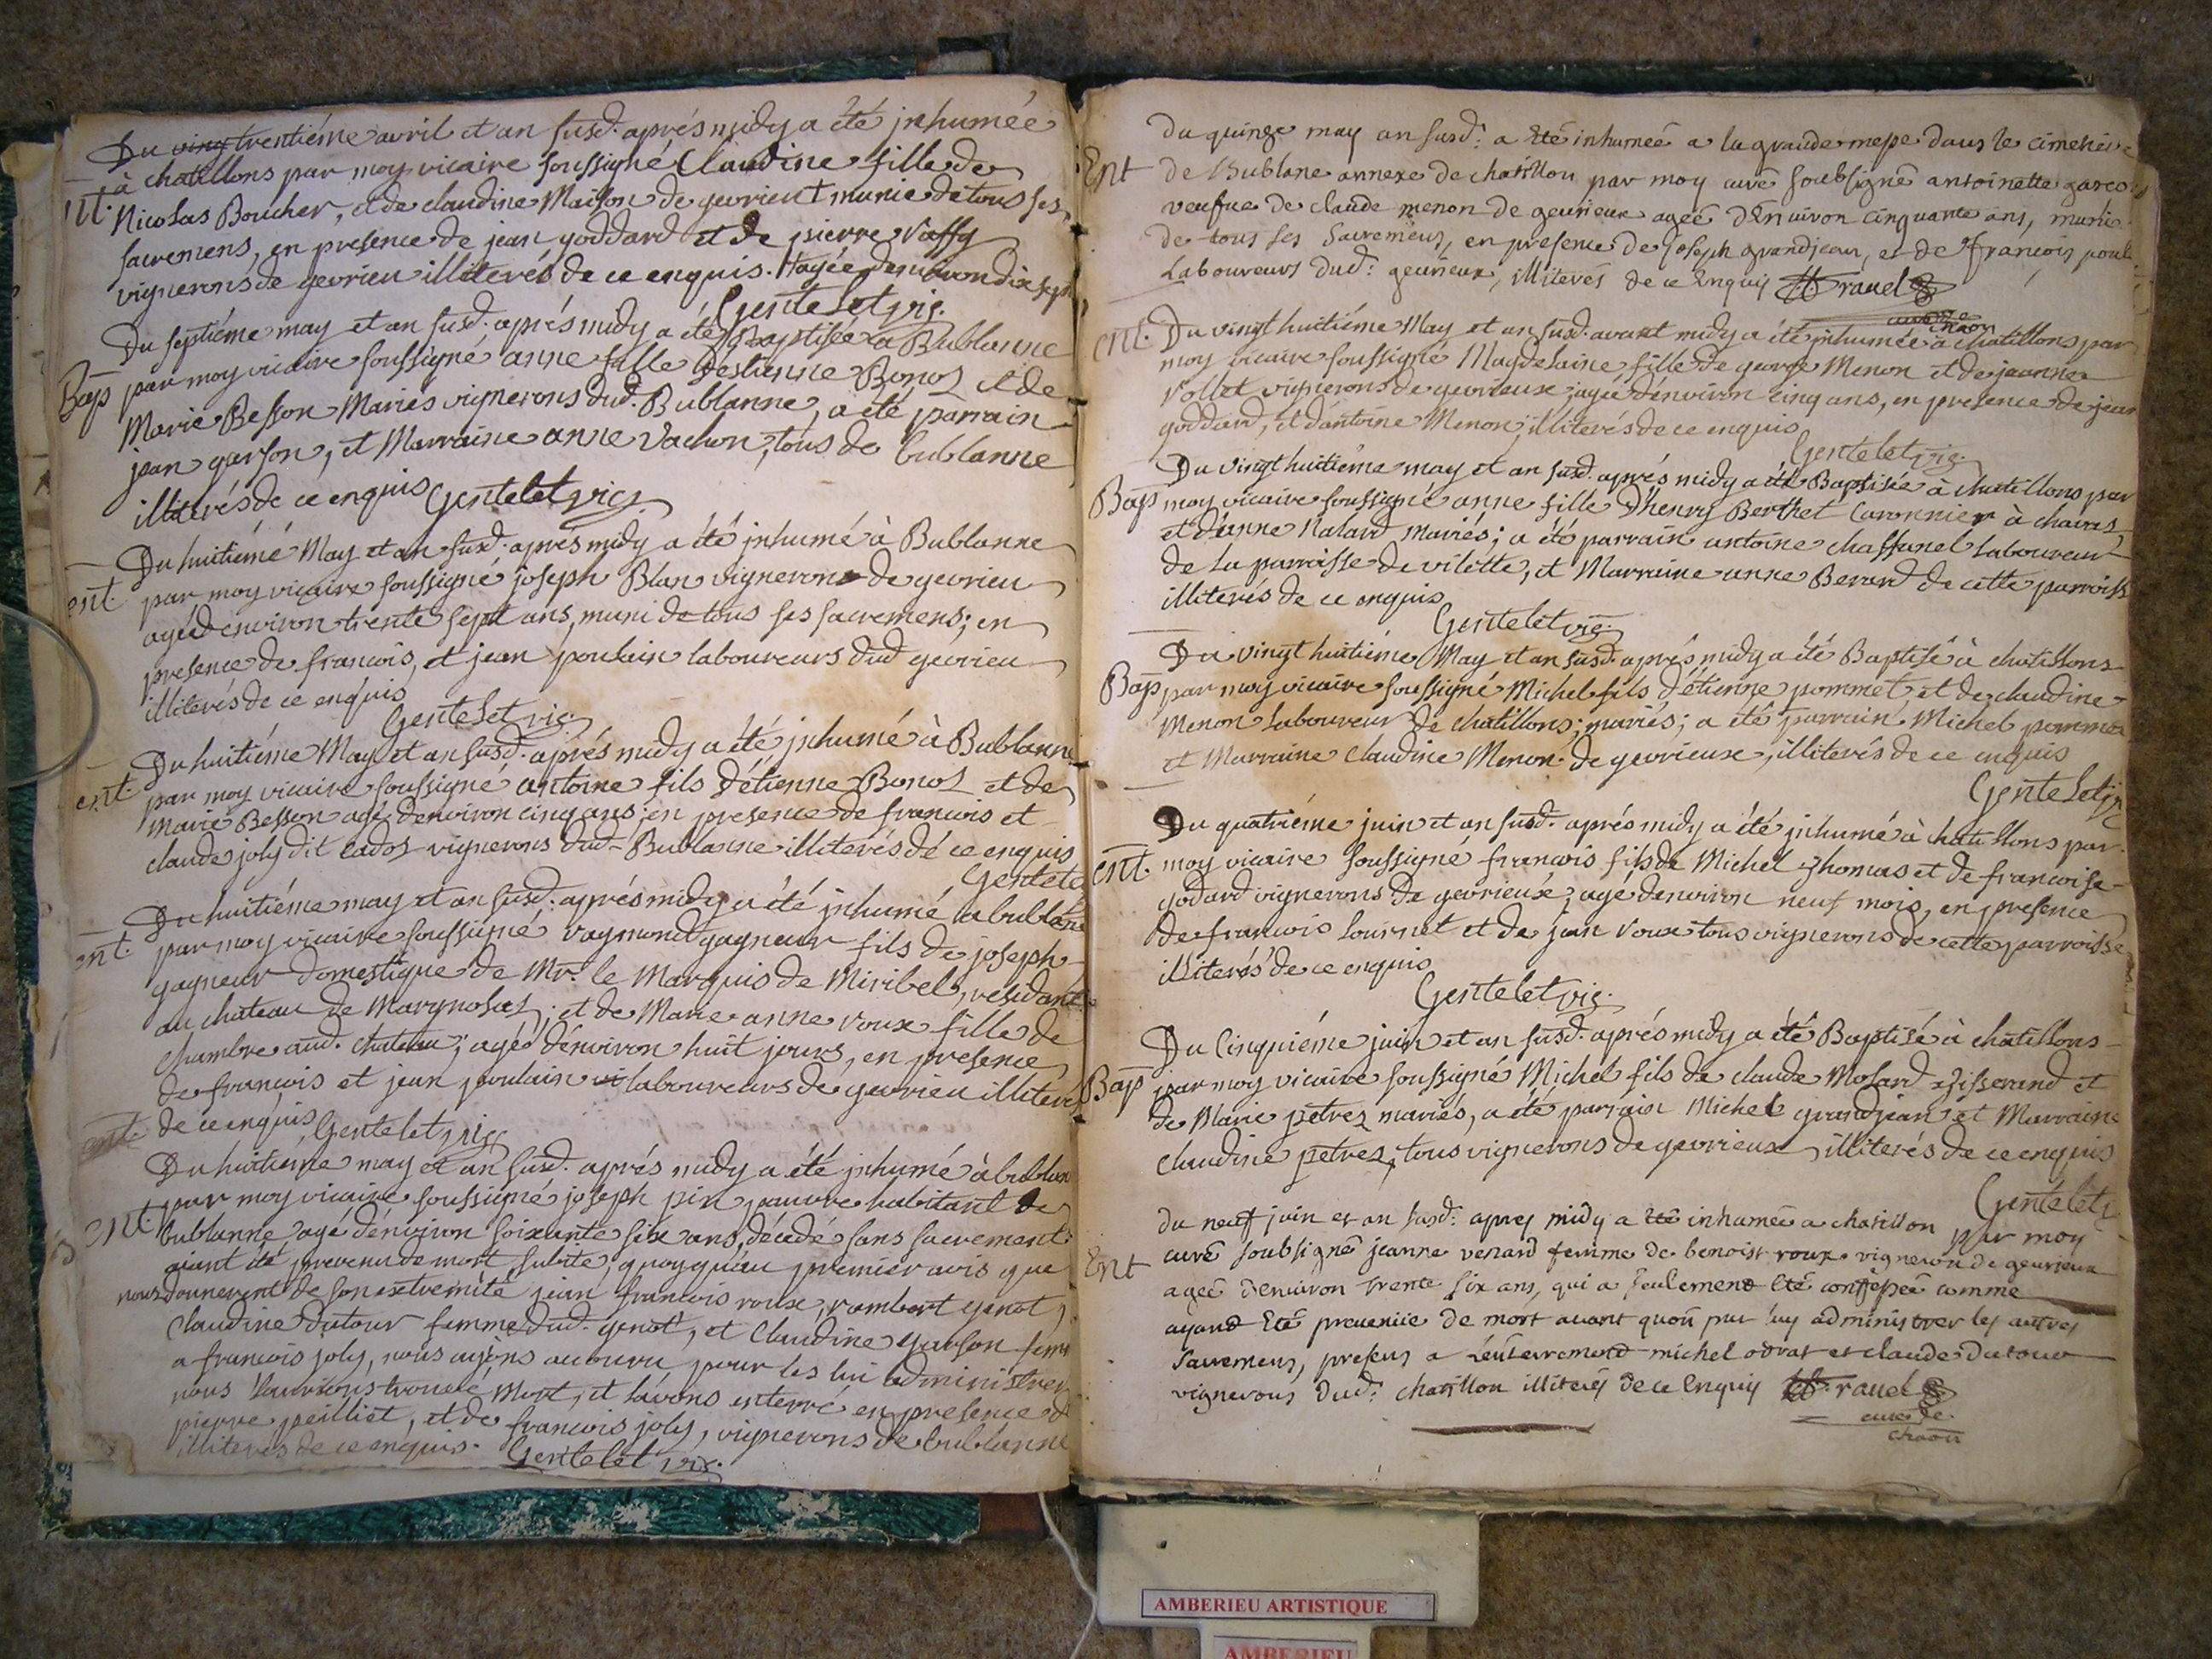 Du trentiéme avril et an susd. aprés midy a été jnhumée
à chatillons par moy vicaire soussigné Claudine fille de
nt. Nicolas Boucher, et de claudine Maison de gevrieu munie de tous ses
sacremens, en presence de jean goddard et de pierre
vignerons de gevrieu illiterés de ce enquis. agée denviron dix sept
Gentelet vic.
Du septiéme may et an susd. aprés midy a été Baptisée a Bublanne
Bap par moy vicaire soussigné anne fille destienne Bonoz et de
Marie Besson Mariés vignerons dud. Bublanne, a été parrain
jean garson, et Marraine anne Vachon, tous de bublanne
illiterés de ce enquis Gentelet vic.
Du huitiémé May et an susd. aprés midy a été jnhumé à Bublanne
ent. par moy vicaire soussigné joseph Blan vigneron de gevrieu
agé denviron trente sept ans, muni de tous ses sacremens; en
presence de francois, et jean poulain laboureurs dud gevrieu
illiterés de ce enquis
Gentelet vic.
Du huitiéme May et an susd. aprés midy a été jnhumé à Bublanne
ent. par moy vicaire soussigné antoine fils détienne Bonoz et de
marie Besson agé denviron cinq ans; en presence de francois et
claude joly dit cadoz vignerons dud. Bublanne illiterés de ce enquis
Gentele
Du huitiéme may et an susd. aprés midy a été jnhumé a bublane
ent. par moy vicaire soussigné raymond gagneur fils de joseph
gagneur domestique de Mr. le Marquis de Miribel, residant
au chateau de Marynolas; et de Marie anne roux fille de
chambre aud. chateau; agé dénviron huit jours, en presence
de francois et jean poulain laboureurs de gevrieu illiteres
ent. de ce enquis Gentelet vic
Du huitiéme may et an susd. aprés midy a été jnhumé à bublan
ent. par moy vicaire soussigné joseph pin pauvre habitant de
bublanne agé dénviron soixante six ans, décédé sans sacrement
aiant été prevenu de mort subite, quoyqu'au premier avis que
nous donnerent de son extremité jean francois roux, rambert genot,
Claudine dutour femme dud. genot, et Claudine garson fem
a francois joly, nous aijons accouru pour les lui administrer
nous l'aurions trouvé Mort, et lávons enterré en presence de
pierre peilliet, et de francois joly, vignerons de bublanne
illiterés de ce enquis. Gentelet vic.
Du quinze may an susd: a Eté inhumeé a la grande messe dans le cimetiere
Ent de Bublane annexe de chatillon par moy curé soubsigné antoinette garcon
veufue de claude menon de geurieux ageé dEnuiron cinquante ans, munie
de tous ses Sacremens, en presence de Joseph grandjean, et de francois poul
Laboureurs dud: geurieux, illiterés de ce Enquis ravel
curé de
chaon
ent. Du vingt huitiéme May et an susd. avant midy a été jnhumée à chatillons par
moy vicaire soussigné Magdelaine fille de george Menon et de jeanne
Vollet vignerons de gevrieux; agée dénviron cinq ans, en presence de jean
goddard, et dantoine Menon; illiterés de ce enquis
Gentelet vic.
Du vingt huitiéme may et an susd. aprés midy a été Baptisée à chatillons par
Bap moy vicaire soussigné anne fille D'henry Berthet Caronnier à
et d'anne Nalard mariés; a été parrain antoine chaffanel laboureur
de la parroisse de vilette, et Marraine anne Berard de cette parroiss
illiterés de ce enquis
Gentelet vic.
Du vingt huitiéme May et an susd. aprés midy a été Baptisé à chatillons
Bap par moy vicaire soussigné Michel fils d'étienne pommet, et de claudine
Menon laboureur de chatillons; mariés; a été parrain Michel pomme
et Marraine Claudine Menon de gevrieux, illiterés de ce enquis
Gentelet
Du quatriéme juin et an susd. aprés midy a été jnhumé à chatillons par
ent. moy vicaire soussigné francois fils de Michel Thomas et de francoise
godard vignerons de gevrieux; agé denviron neuf mois, en presence
de francois et de jean roux tous vignerons de cette parroisse
illiterés de ce enquis
Gentelet vic.
Du Cinquiéme juin et an susd. aprés midy a été Baptisé à chatillons
Bap par moy vicaire soussigné Michel fils de claude Molard Tisserand et
de Marie petrez mariés, a été parrain Michel grandjean et Marraine
Claudine petrez, tous vignerons de gevrieux illiterés de ce enquis
Gentelet
du neuf juin et an susd: apres midy a Eté inhumeé a chatillon par moy
Ent curé soubsigné jeanne venard femme de benoist roux vigneron de geurieux
ageé denuiron trente six ans, qui a seulement Eté confesseé comme
ayand Eté preueniie de mort auant quon put luy administrer les autres
Sacremens, presens a Lenterrement michel odrat et claude dutour
vignerons dud: chatillon illiteres de ce Enquis ravel
curé de
chaon
AMBERIEU ARTISTIQUE
AMBERIEU